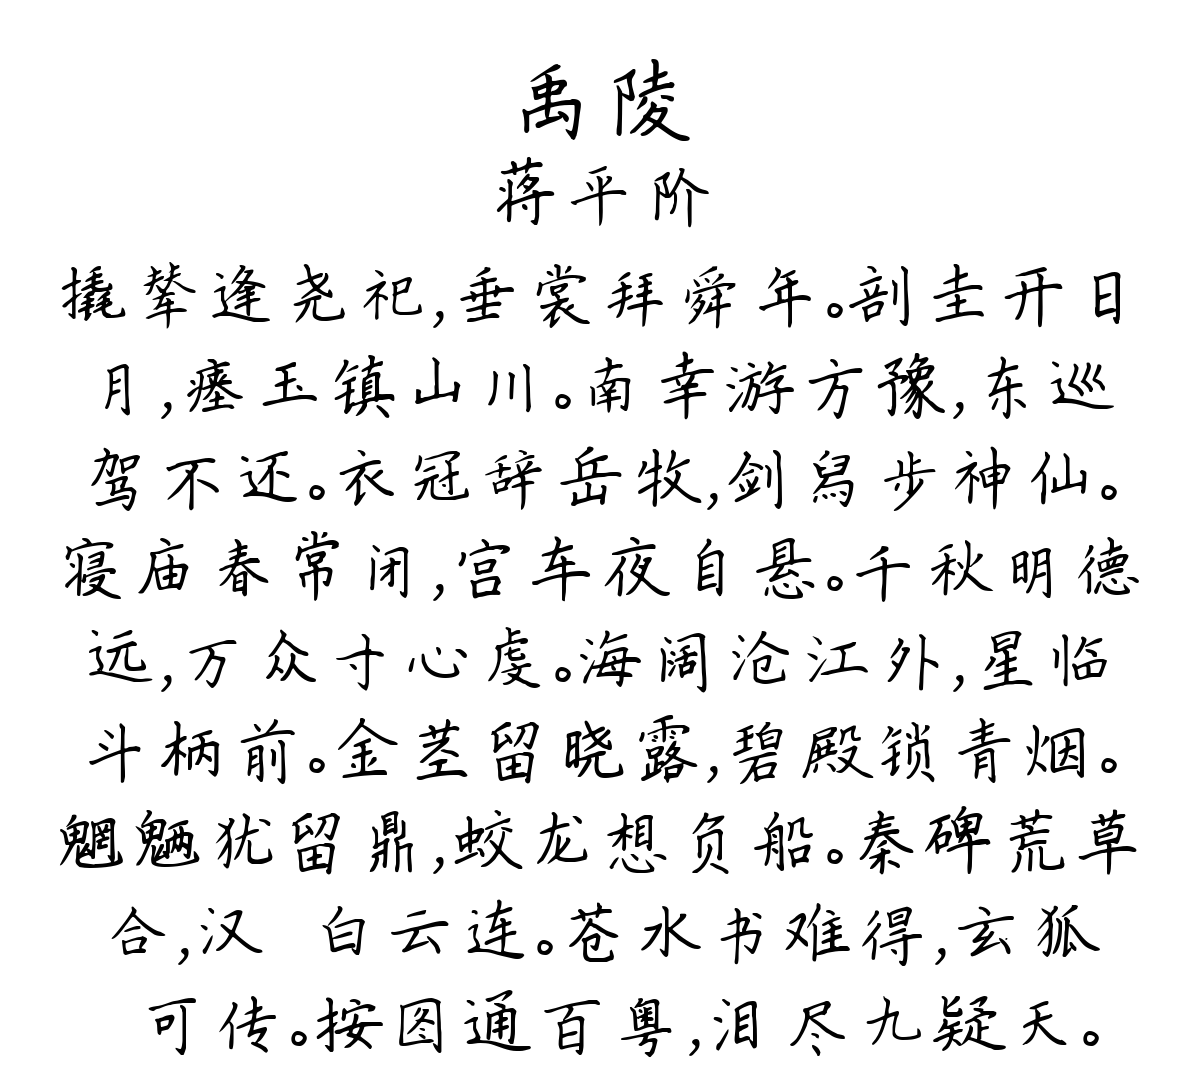 禹陵
蒋平阶
撬辇逢尧祀,垂裳拜舜年。剖圭开日
月,瘗玉镇山川。南幸游方豫,东巡
驾不还。衣冠辞岳牧,剑舄步神仙。
寝庙春常闭,宫车夜自悬。千秋明德
远,万众寸心虔。海阔沧江外,星临
斗柄前。金茎留晓露,碧殿锁青烟。
魍魉犹留鼎,蛟龙想负船。秦碑荒草
合,汉 白云连。苍水书难得,玄狐
可传。按图通百粤,泪尽九疑天。